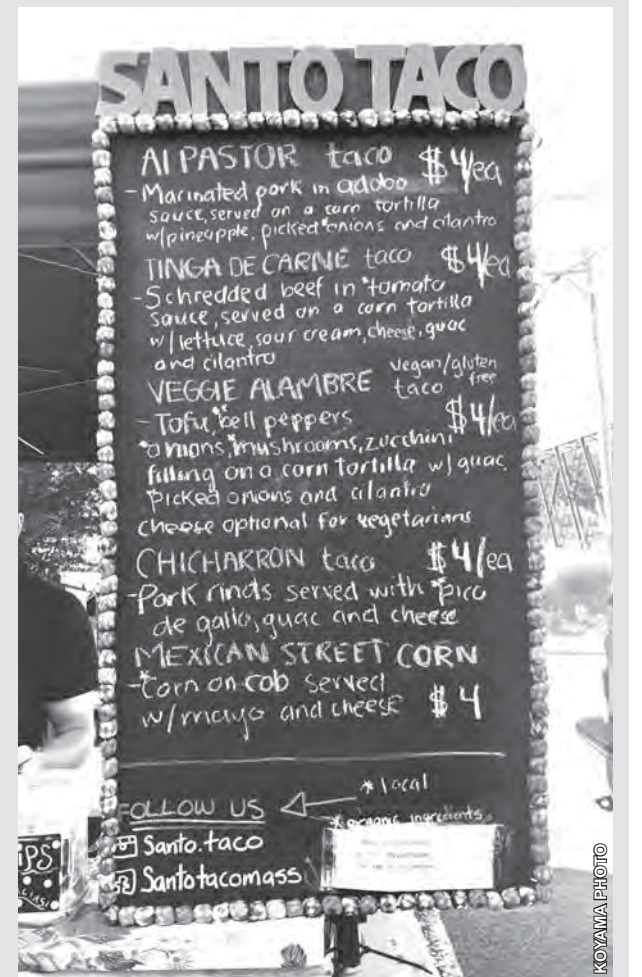 SANTO TACO
Al PASTOR taco $4/ea
- Marinated pork in adobo
sauce, served on a corn tortilla
w/pineapple, picked *onions and cilantro
TINGA DE CARNE taco $4/ea
- Schredded beef in *tomato
sauce, served on a corn tortilla
w/lettuce, sour cream, cheese, guac
and cilantro
VEGGIE ALAMBRE taco vegan/gluten free
- Tofu, *bell peppers $4/ea
*onions, *mushrooms, zucchini
filling on a corn tortilla w/ guac
Picked onions and cilantro
cheese optional for vegetarians
CHICHARRON taco $4/ea
- Pork rinds served with *pico
de gallo, guac and cheese
MEXICAN STREET CORN
- *Corn on cob served
w/mayo and cheese $4
* local
FOLLOW US
* organic ingredients
Santo.taco
Santotacomass
KOYAMA PHOTO